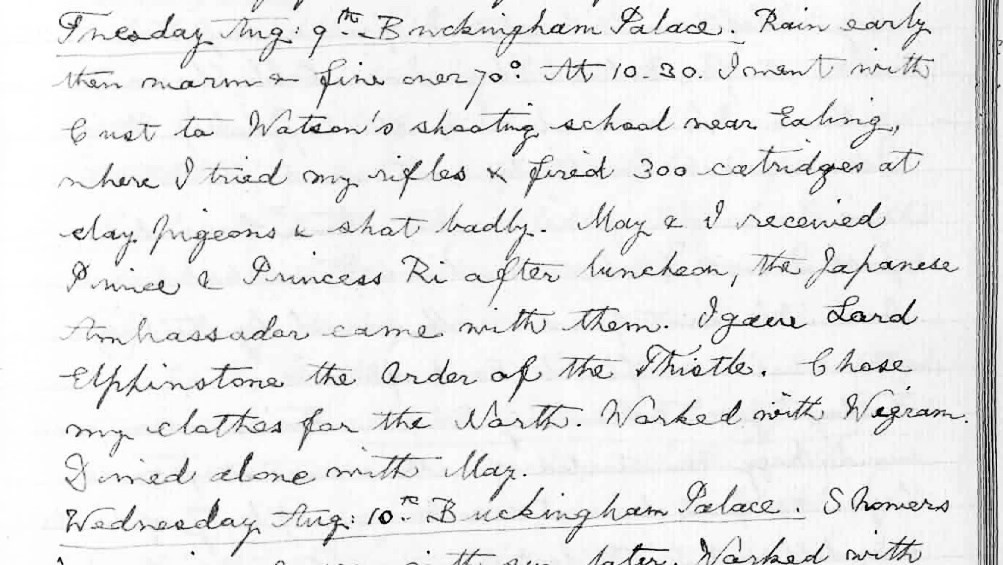 Tuesday Aug: 9th Buckingham Palace. Rain early
then warm & fine over 70°. At 10.30. I went with
Cust to Watson's shooting school near Ealing,
where I tried my rifles & fired 300 catridges at
clay pigeons & shot badly. May & I received
Prince & Princess Ri after luncheon, the Japanese
Ambassador came with them. I gave Lord
Elphinstone the Order of the Thistle. Chose
my clothes for the North. Worked with Wigram.
Dined alone with May.
Wednesday Aug: 10th Buckingham Palace. Showers
later. Worked with